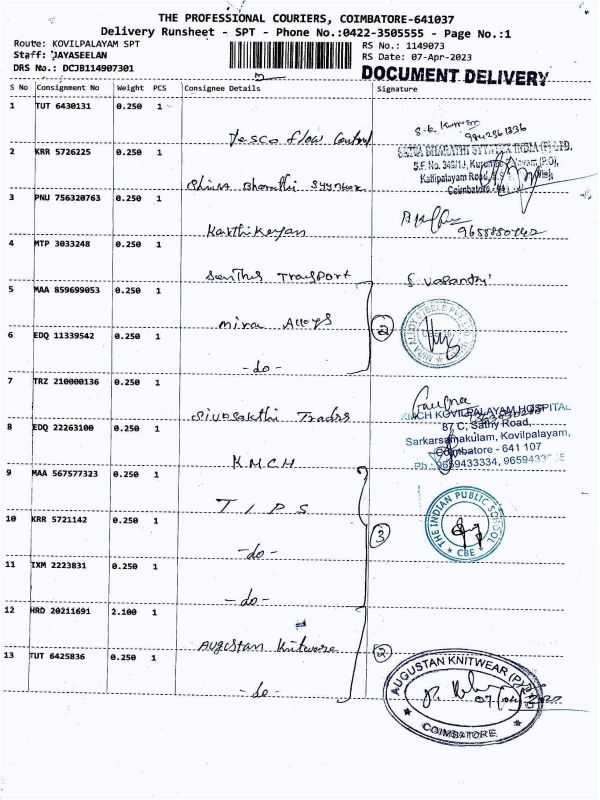 THE PROFESSIONAL COURIERS, COIMBATORE-641037
Delivery Runsheet - SPT - Phone No.:0422-3505555 - Page No.:1
Route: KOVILPALAYAM SPT
Staff: JAYASEELAN
DRS No.: DCJB114907301
RS No.: 1149073
RS Date: 07-Apr-2023
DOCUMENT DELIVERY
S No Consignment No Weight PCS Consignee Details Signature
1 TUT 6430131 0.250 1
Vesco flow Control
2 KRR 5726225 0.250 1
Shiva Bharathi
S.F. No.
Coimbatore
3 PNU 756320763 0.250 1
Karthikeyan
4 MTP 3033248 0.250 1
Transport
5 MAA 859699053 0.250 1
Mira Alloys
2
6 EDQ 11339542 0.250 1
-do-
7 TRZ 210000136 0.250 1
Sivasakthi Traders
KMCH KOVILPALAYAM HOSPITAL
87 C, Sathy Road,
Sarkarsamakulam, Kovilpalayam,
Coimbatore - 641 107
Ph.: 9659433334,
8 EDQ 22263100 0.250 1
K.M.C.H
9 MAA 567577323 0.250 1
T I P S
THE INDIAN PUBLIC SCHOOL
CBE
3
10 KRR 5721142 0.250 1
-do-
11 IXM 2223831 0.250 1
-do-
12 HRD 20211691 2.100 1
Augustan Knitwear
2
13 TUT 6425836 0.250 1
-do-
AUGUSTAN KNITWEAR (P)
COIMBATORE